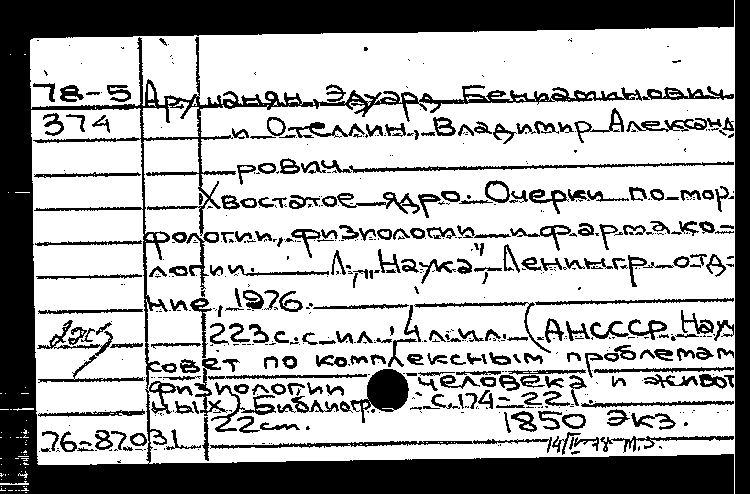 78-5 Арушанян, Эдуард Бениаминович
374 и Отеллин, Владимир Александ
рович.
Хвостатое ядро. Очерки по мор
фологии, физиологии и фармако-
логии. Л., „Наука", Ленингр. отд-
ние, 1976.
223 с. с ил.; 4 л. ил. (АНСССР. Науч
совет по комплексным проблемам
физиологии человека и живот
ных) Библиогр. с. 174-221.
22 см. 1850 экз.
76-87031
14/IV-78 М.З.